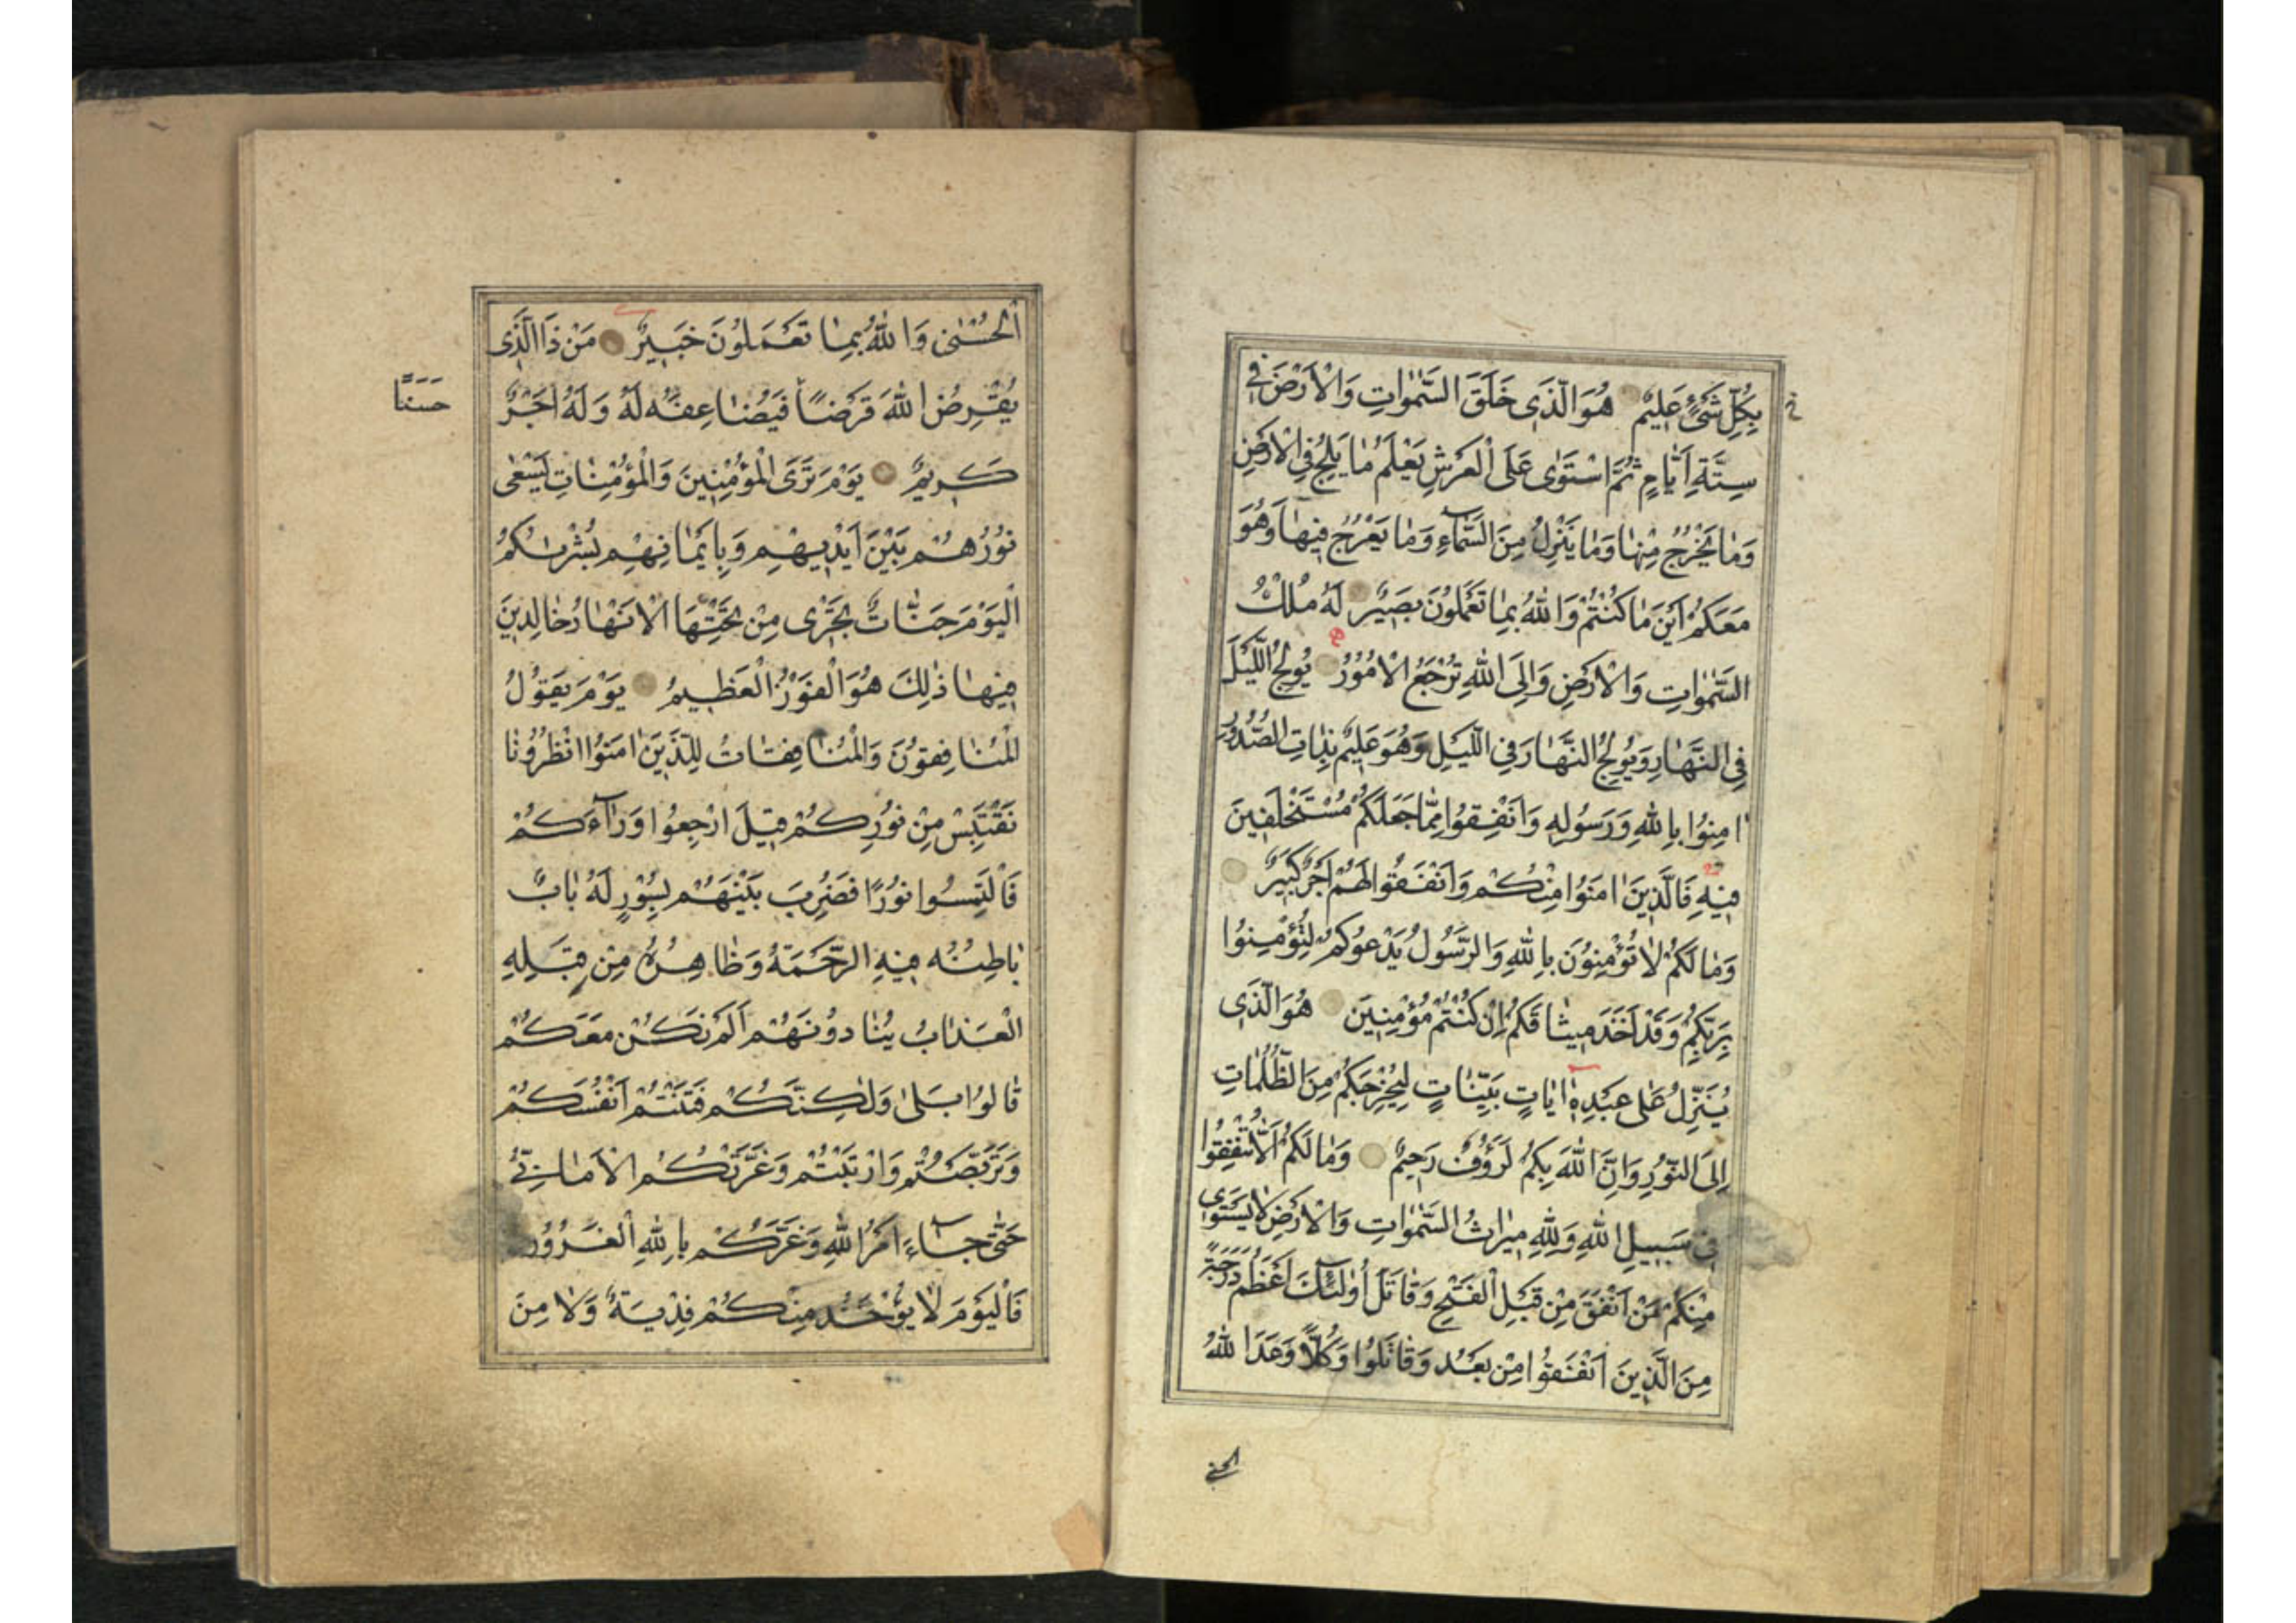 بِكُلِّ شَىْءٍ عَلِيمٌ هُوَ الَّذِى خَلَقَ السَّمٰوَاتِ وَالْاَرْضَ فِى
سِتَّةِ اَيَّامٍ ثُمَّ اسْتَوٰى عَلَى الْعَرْشِ يَعْلَمُ مَا يَلِجُ فِى الْاَرْضِ
وَمَا يَخْرُجُ مِنْهَا وَمَا يَنْزِلُ مِنَ السَّمَآءِ وَمَا يَعْرُجُ فِيهَا وَهُوَ
مَعَكُمْ اَيْنَ مَا كُنْتُمْ وَاللّٰهُ بِمَا تَعْمَلُونَ بَصِيرٌ لَهُ مُلْكُ
السَّمٰوَاتِ وَالْاَرْضِ وَاِلَى اللّٰهِ تُرْجَعُ الْاُمُورُ يُولِجُ اللَّيْلَ
فِى النَّهَارِ وَيُولِجُ النَّهَارَ فِى اللَّيْلِ وَهُوَ عَلِيمٌ بِذَاتِ الصُّدُورِ
اٰمِنُوا بِاللّٰهِ وَرَسُولِهِ وَاَنْفِقُوا مِمَّا جَعَلَكُمْ مُسْتَخْلَفِينَ
فِيهِ فَالَّذِينَ اٰمَنُوا مِنْكُمْ وَاَنْفَقُوا لَهُمْ اَجْرٌ كَبِيرٌ
وَمَا لَكُمْ لَا تُؤْمِنُونَ بِاللّٰهِ وَالرَّسُولُ يَدْعُوكُمْ لِتُؤْمِنُوا
بِرَبِّكُمْ وَقَدْ اَخَذَ مِيثَاقَكُمْ اِنْ كُنْتُمْ مُؤْمِنِينَ هُوَ الَّذِى
يُنَزِّلُ عَلٰى عَبْدِهٖ اٰيَاتٍ بَيِّنَاتٍ لِيُخْرِجَكُمْ مِنَ الظُّلُمَاتِ
اِلَى النُّورِ وَاِنَّ اللّٰهَ بِكُمْ لَرَؤُفٌ رَحِيمٌ وَمَا لَكُمْ اَلَّا تُنْفِقُوا
فِى سَبِيلِ اللّٰهِ وَلِلّٰهِ مِيرَاثُ السَّمٰوَاتِ وَالْاَرْضِ لَا يَسْتَوِى
مِنْكُمْ مَنْ اَنْفَقَ مِنْ قَبْلِ الْفَتْحِ وَقَاتَلَ اُولٰئِكَ اَعْظَمُ دَرَجَةً
مِنَ الَّذِينَ اَنْفَقُوا مِنْ بَعْدُ وَقَاتَلُوا وَكُلًّا وَعَدَ اللّٰهُ
الْحُسْنٰى وَاللّٰهُ بِمَا تَعْمَلُونَ خَبِيرٌ مَنْ ذَا الَّذِى
يُقْرِضُ اللّٰهَ قَرْضًا فَيُضَاعِفَهُ لَهُ وَلَهُ اَجْرٌ
حَسَنًا
كَرِيمٌ يَوْمَ تَرَى الْمُؤْمِنِينَ وَالْمُؤْمِنَاتِ يَسْعٰى
نُورُهُمْ بَيْنَ اَيْدِيهِمْ وَبِاَيْمَانِهِمْ بُشْرٰىكُمُ
الْيَوْمَ جَنَّاتٌ تَجْرِى مِنْ تَحْتِهَا الْاَنْهَارُ خَالِدِينَ
فِيهَا ذٰلِكَ هُوَ الْفَوْزُ الْعَظِيمُ يَوْمَ يَقُولُ
الْمُنَافِقُونَ وَالْمُنَافِقَاتُ لِلَّذِينَ اٰمَنُوا انْظُرُونَا
نَقْتَبِسْ مِنْ نُورِكُمْ قِيلَ ارْجِعُوا وَرَآءَكُمْ
فَالْتَمِسُوا نُورًا فَضُرِبَ بَيْنَهُمْ بِسُورٍ لَهُ بَابٌ
بَاطِنُهُ فِيهِ الرَّحْمَةُ وَظَاهِرُهُ مِنْ قِبَلِهِ
الْعَذَابُ يُنَادُونَهُمْ اَلَمْ نَكُنْ مَعَكُمْ
قَالُوا بَلٰى وَلٰكِنَّكُمْ فَتَنْتُمْ اَنْفُسَكُمْ
وَتَرَبَّصْتُمْ وَارْتَبْتُمْ وَغَرَّتْكُمُ الْاَمَانِىُّ
حَتّٰى جَآءَ اَمْرُ اللّٰهِ وَغَرَّكُمْ بِاللّٰهِ الْغَرُورُ
فَالْيَوْمَ لَا يُؤْخَذُ مِنْكُمْ فِدْيَةٌ وَلَا مِنَ